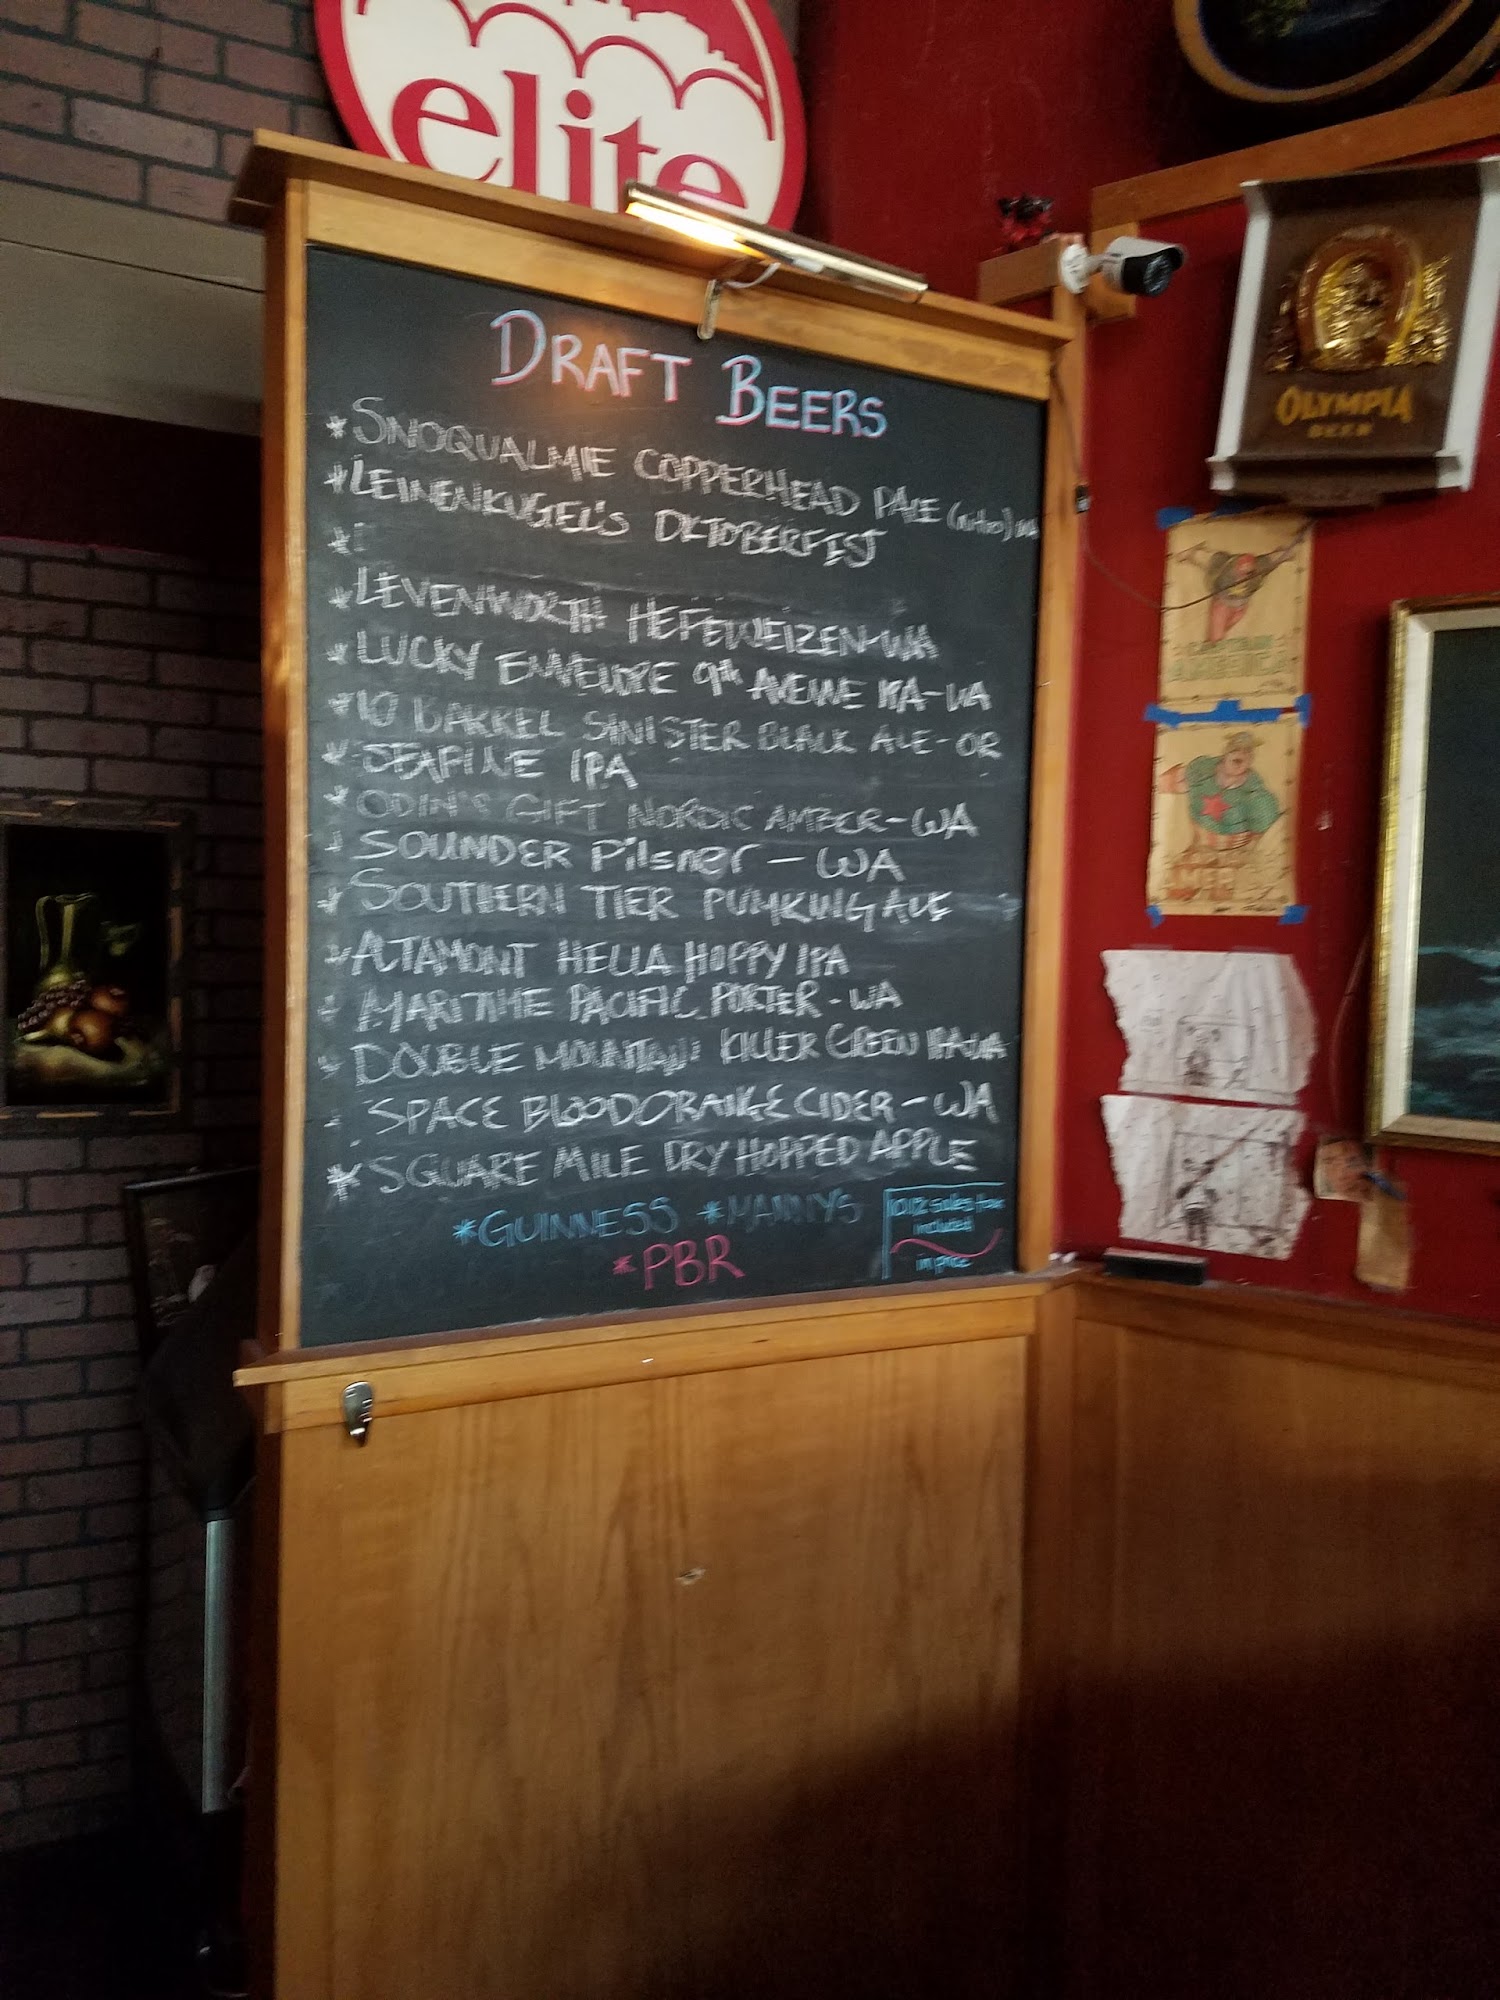 elite
DRAFT BEERS
* SNOQUALMIE COPPERHEAD PALE (nitro) WA
* LEINENKUGEL'S OKTOBERFEST
*
* LEVENWORTH HEFEWEIZEN-WA
* LUCKY ENVELOPE 9th AVENUE IPA-WA
* 10 BARREL SINISTER BLACK ALE-OR
* SEAPINE IPA
* ODIN'S GIFT NORDIC AMBER-WA
* SOUNDER Pilsner - WA
* SOUTHERN TIER PUMKING ALE
* ALTAMONT HELLA HOPPY IPA
* MARITIME PACIFIC PORTER-WA
* DOUBLE MOUNTAIN KILLER GREEN IPA-WA
* SPACE BLOOD ORANGE CIDER-WA
* SQUARE MILE DRY HOPPED APPLE
* GUINNESS * MANNYS
* PBR
10.1% sales tax
included
in price
OLYMPIA
BEER
CAPTAIN
AMERICA